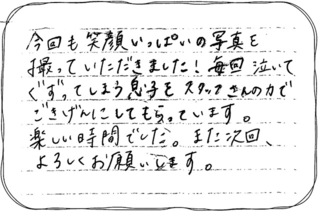 今回も笑顔いっぱいの写真を
撮っていただきました！毎回泣いて
ぐずってしまう息子をスタッフさんの力で
ごきげんにしてもらっています。
楽しい時間でした。また次回、
よろしくお願いします。